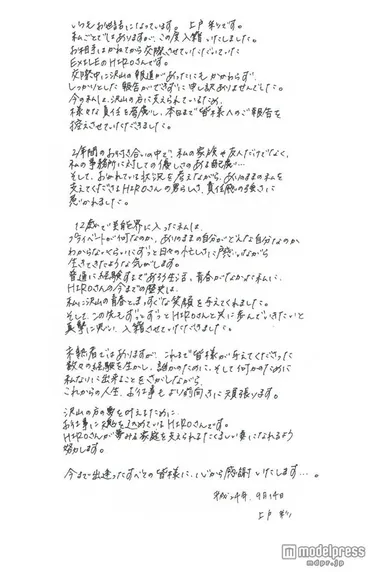 いつもお世話になっています。上戸彩です。
私ごとではありますが、この度入籍いたしました。
お相手はかねてから交際させていただいていた
EXILEのHIROさんです。
交際中に沢山の報道があったにもかかわらず、
しっかりとした報告ができずに申し訳ありませんでした。
今の私は、沢山の方に支えられているため、
様々な責任を考慮し、本日まで皆様へのご報告を
控えさせていただきました。
2年間のお付き合いの中で、私の家族や友人だけでなく、
私の事務所に対しての優しさのある配慮…
そして、おかれている状況を考えながら、ありのままの私を
支えてくださるHIROさんの男らしさ、責任感の強さに
惹かれました。
12歳で芸能界に入った私は、
プライベートが何なのか、ありのままの自分がどんな自分なのか
わからないくらいにずっと日々の忙しさに
生きてきたような気がします。
普通に経験するであろう生活、青春がなかった私に、
HIROさんの今までの歴史は、
私に沢山の青春とまっすぐな笑顔を与えてくれました。
そして、この先もずっとずっとHIROさんと共に歩んでいきたいと
真摯に思い、入籍させていただきました。
未熟者ではありますが、これまで皆様が与えてくださった
数々の経験を生かし、誰かのために、そして何かのために
私なりに出来ることをさがしながら、
これからの人生、お仕事もより前向きに頑張ります。
沢山の方の夢を叶えるために
お仕事に魂を込めているHIROさんです。
HIROさんが夢みる家庭を支えられるたくましい妻になれるよう
努力します。
今まで出逢ったすべての皆様に、心から感謝いたします…。
平成24年、9月14日
上戸 彩
modelpress
mdpr.jp